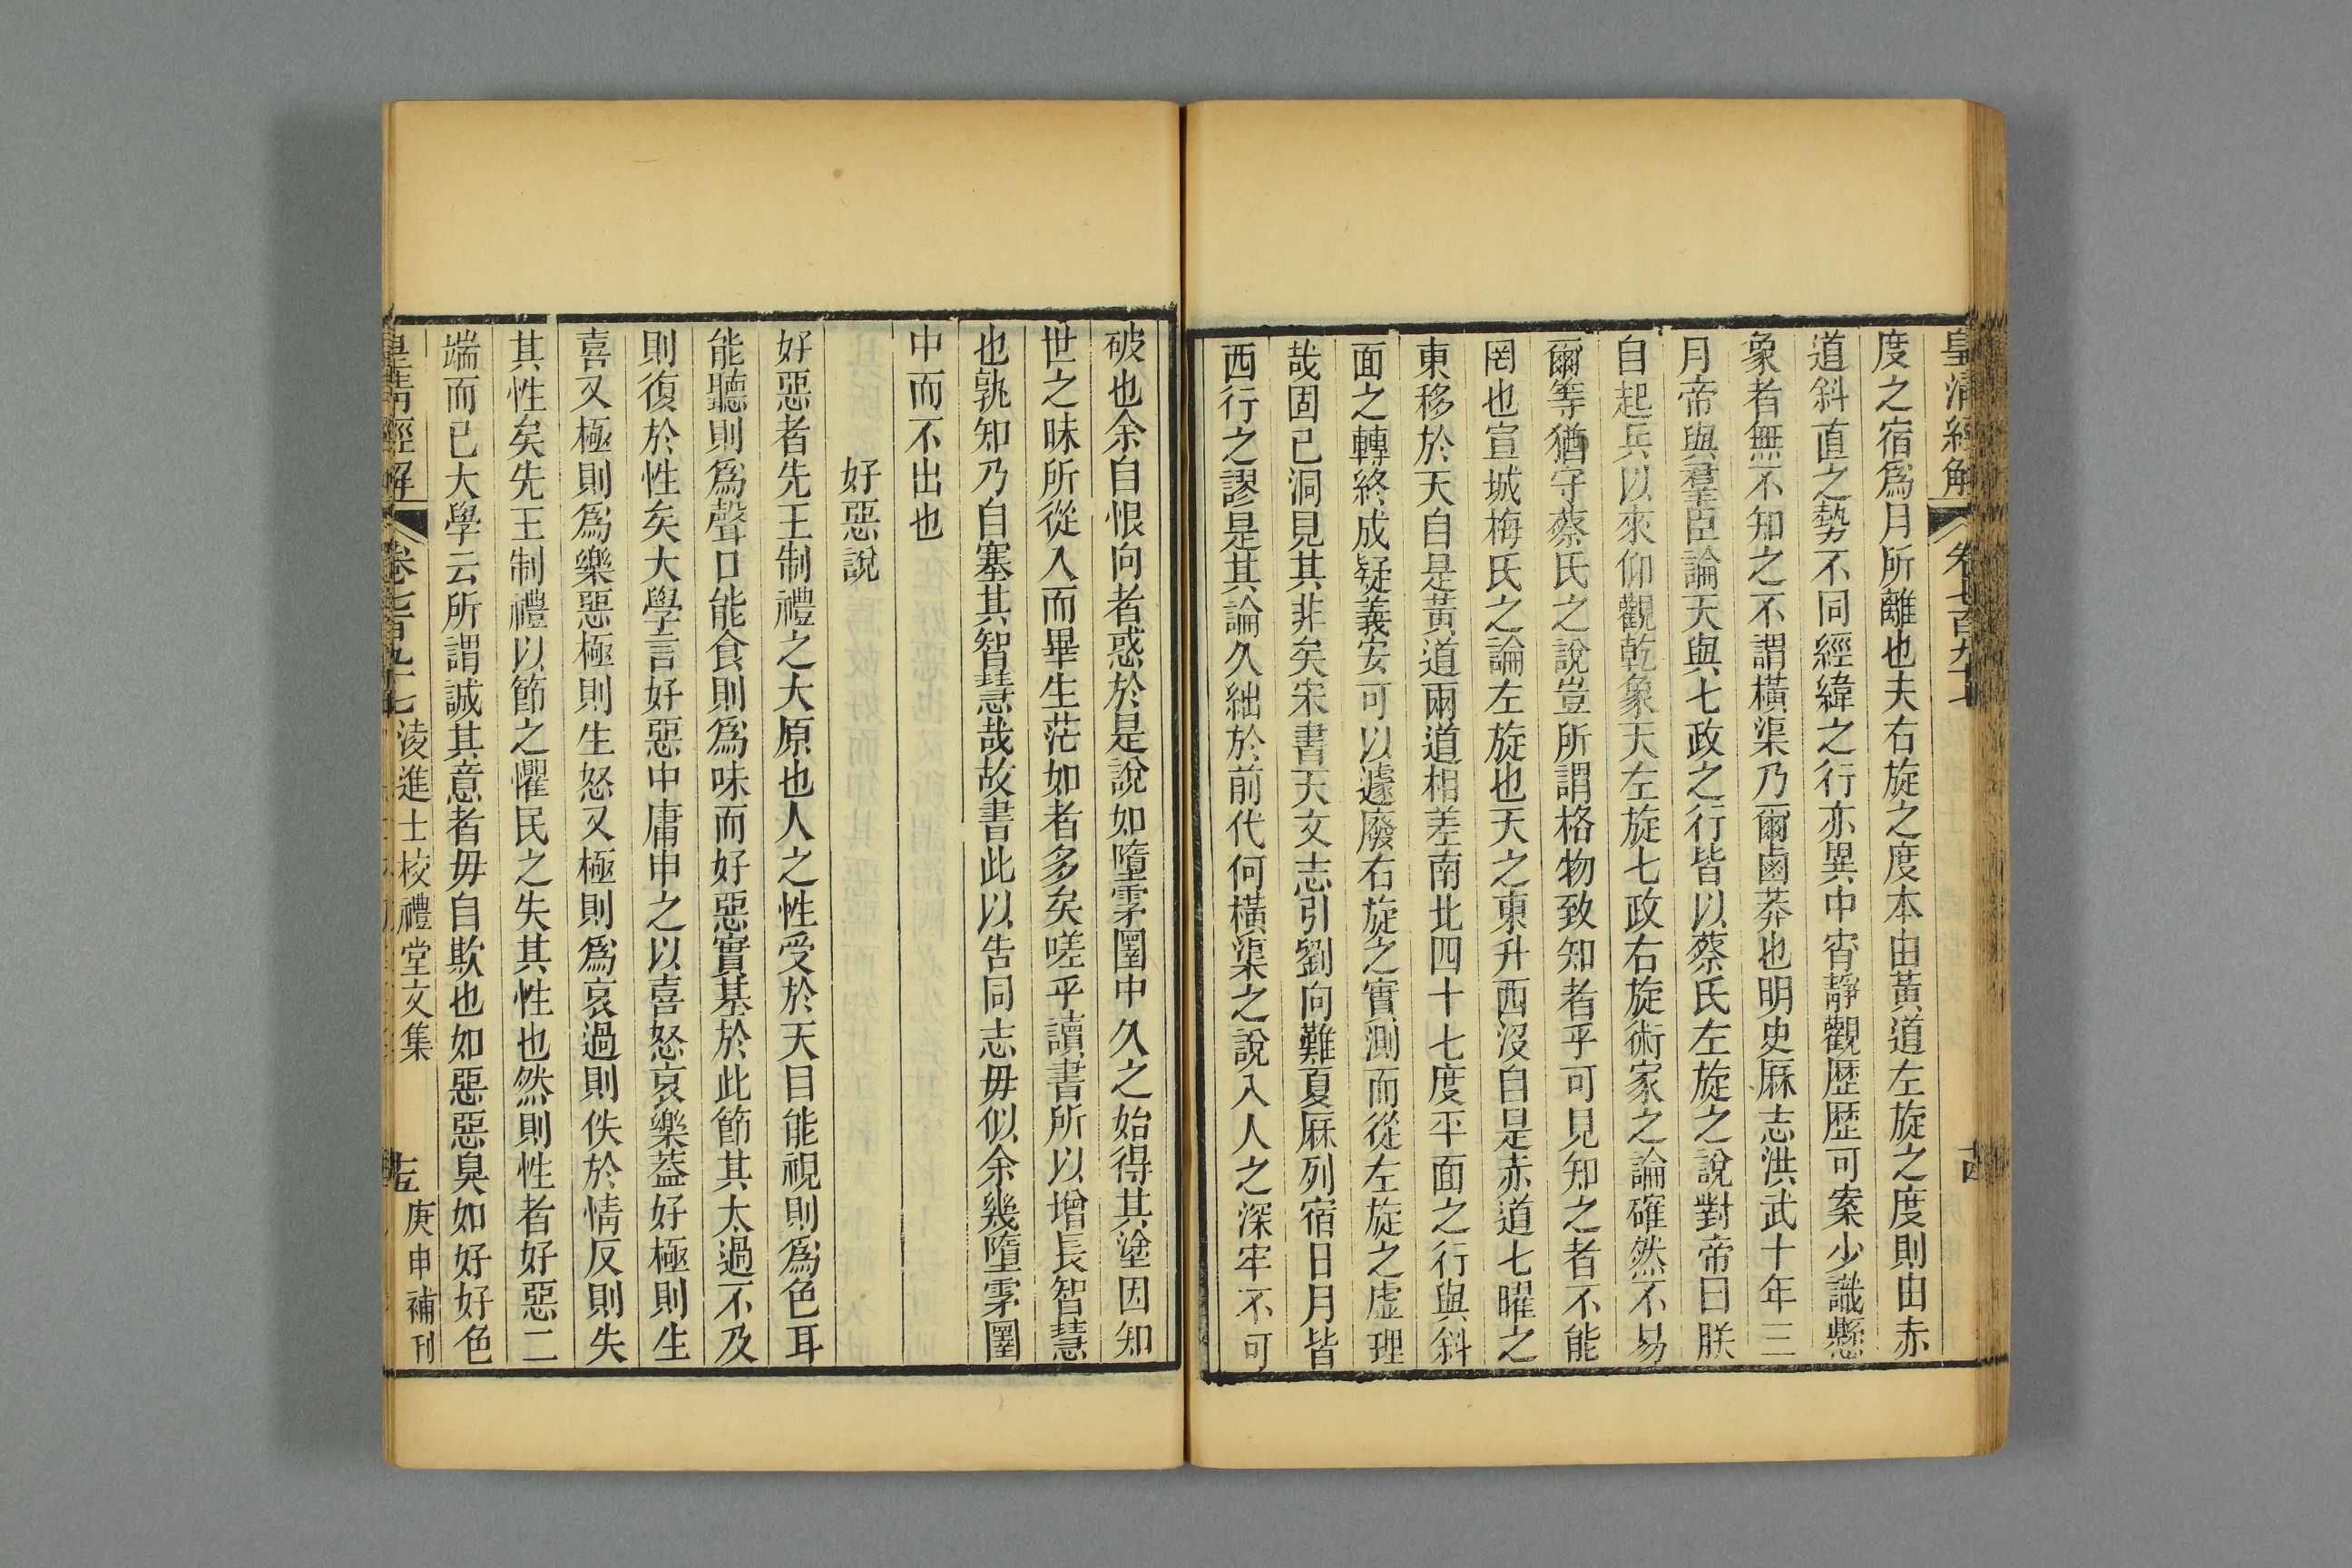 皇清經解 卷七百九十七 古
度之宿爲月所離也夫右旋之度本由黃道左旋之度則由赤
道斜直之勢不同經緯之行亦異中宵靜觀歷歷可案少識懸
象者無不知之不謂橫渠乃爾鹵莽也明史厤志洪武十年三
月帝與羣臣論天與七政之行皆以蔡氏左旋之說對帝曰朕
自起兵以來仰觀乾象天左旋七政右旋術家之論確然不易
爾等猶守蔡氏之說豈所謂格物致知者乎可見知之者不能
罔也宣城梅氏之論左旋也天之東升西沒自是赤道七曜之
東移於天自是黃道兩道相差南北四十七度平面之行與斜
面之轉終成疑義安可以遽廢右旋之實測而從左旋之虛理
哉固已洞見其非矣宋書天文志引劉向難夏厤列宿日月皆
西行之謬是其論久絀於前代何橫渠之說入人之深牢不可
破也余自恨向者惑於是說如墮雰圍中久之始得其塗因知
世之昧所從入而畢生茫如者多矣嗟乎讀書所以增長智慧
也孰知乃自塞其智慧哉故書此以告同志毋似余幾墮雰圍
中而不出也
好惡說
好惡者先王制禮之大原也人之性受於天目能視則爲色耳
能聽則爲聲口能食則爲味而好惡實基於此節其太過不及
則復於性矣大學言好惡中庸申之以喜怒哀樂葢好極則生
喜又極則爲樂惡極則生怒又極則爲哀過則佚於情反則失
其性矣先王制禮以節之懼民之失其性也然則性者好惡二
端而已大學云所謂誠其意者毋自欺也如惡惡臭如好好色
皇清經解 卷七百九十七 淩進士校禮堂文集 十五 庚申補刊